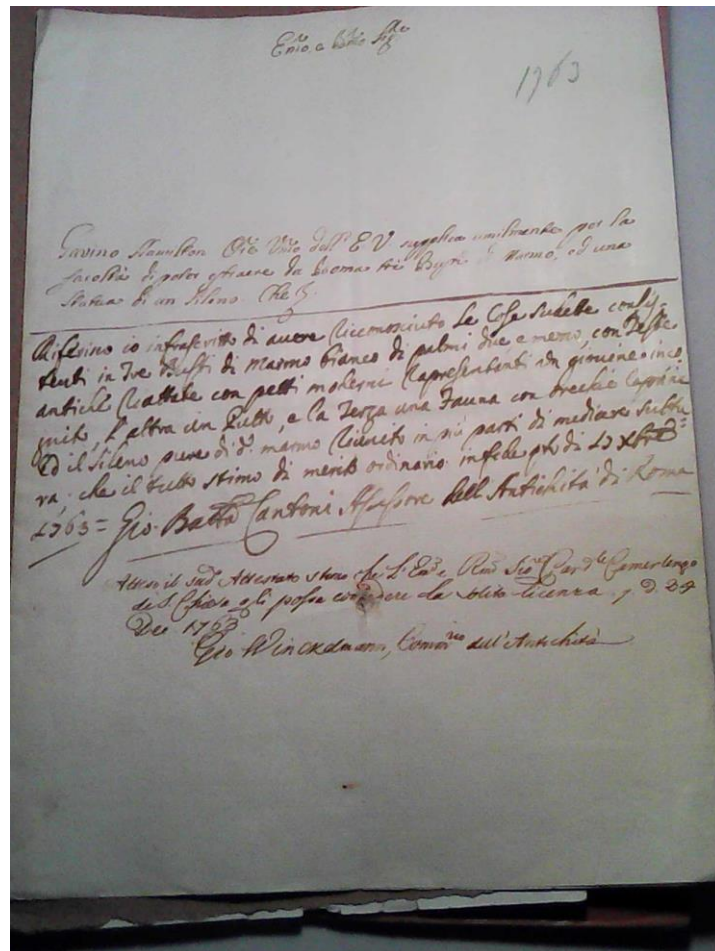 Em̃o e Rmo Sigre
1763
Gavino Hamilton Ore Umo dell' E V supplica umilmente per la
facoltà di poter estraere da Roma trè Busti di Marmo, ed una
Statua di un Sileno. Che
Riferisco io infrascritto di avere riconosciuto Le Cose sudette consis-
tenti in Tre Busti di Marmo bianco di palmi due e mezzo, con Teste
antiche con petti moderni Rapresentanti un giovine inco
gnito, L'altra un Putto, e la Terza una Fauna con orechie Caprine
Ed il Sileno pure di do marmo in più parti di mediocre Scultu
ra che il tutto stimo di merito ordinario in fede qto di 17 Xbre
1763 = Gio. Batta Cantoni Assessore dell Antichità di Roma
Atteso il sudo Attestato stimo che L'Emo e Rmo Sigr Cardle Camerlengo
di S. Chiesa gli possa concedere la solita licenza
Dec 1763
Gio Winckelmann, Commrio dell'Antichità